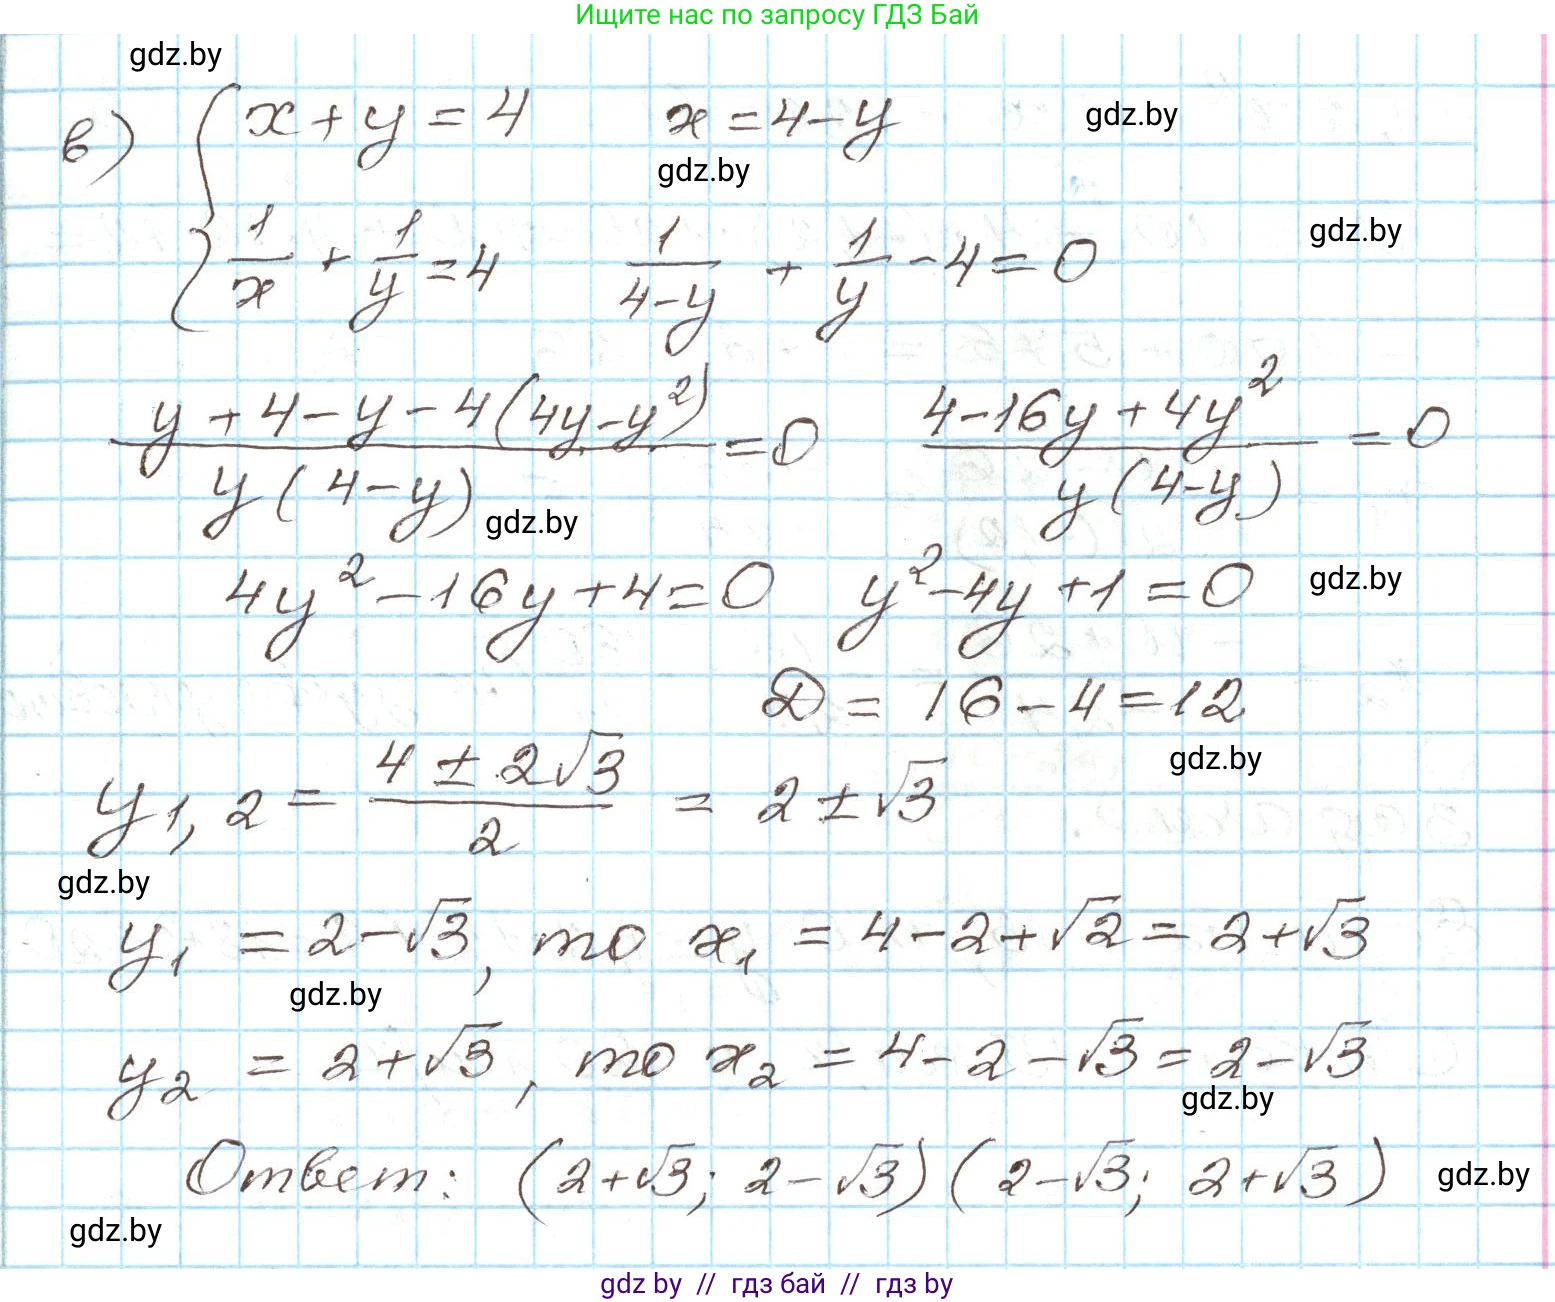 Ищите нас по запросу ГДЗ Бай
gdz.by
в) { x + y = 4    x = 4 - y    gdz.by
gdz.by
1/x + 1/y = 4    1/(4-y) + 1/y - 4 = 0    gdz.by
(y + 4 - y - 4(4y - y²))/(y(4-y)) = 0    (4 - 16y + 4y²)/(y(4-y)) = 0
gdz.by
4y² - 16y + 4 = 0    y² - 4y + 1 = 0    gdz.by
D = 16 - 4 = 12
gdz.by
y₁,₂ = (4 ± 2√3)/2 = 2 ± √3
gdz.by
y₁ = 2 - √3, то x₁ = 4 - 2 + √2 = 2 + √3
gdz.by
y₂ = 2 + √3, то x₂ = 4 - 2 - √3 = 2 - √3
gdz.by
Ответ: (2+√3; 2-√3) (2-√3; 2+√3)    gdz.by
gdz.by
gdz by // гдз бай // гдз by